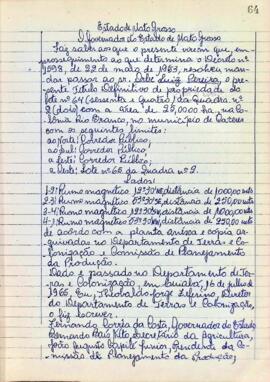 64
Estado de Mato Grosso
O Governador do Estado de Mato Grosso
Faz saber aos que o presente virem que, em
prosseguimento ao que determina o Decreto nº
1598, de 22 de maio de 1953, resolveu man-
dar passar ao sr. Luiz Pereira, o pre-
sente Título Definitivo de propriedade do
lote nº 64 (sessenta e quatro) da Quadra nº
2 (dois) com a área de 25,0000 ha, na Co-
lônia Rio Branco, no município de Cáceres
com os seguintes limites:
ao Norte: Corredor Público,
ao Sul: Corredor Público,
a Leste: Corredor Público,
a Oeste: lote nº 65 da Quadra nº 2.
Lados:
1-2: Rumo magnético distancia de 1000,00 mts
2-3: Rumo magnético distancia de 250,00 mts
3-4: Rumo magnético distancia de 1000,00 mts
4-1: Rumo magnético distancia de 250,00 mts
de acordo com a planta anexa e cópia ar-
quivada no Departamento de Terras e Co-
lonização e Comissão de Planejamento
da Produção.
Dado e passado no Departamento de Ter-
ras e Colonização, em Cuiabá, 16 de julho de
1965. Eu, Diretor
do Departamento de Terras e Colonização,
o fiz escrever.
Fernando Corrêa da Costa, Governador do Estado
Secretário da Agricultura,
João Augusto Capilé Júnior, Presidente da Co-
missão de Planejamento da Produção,